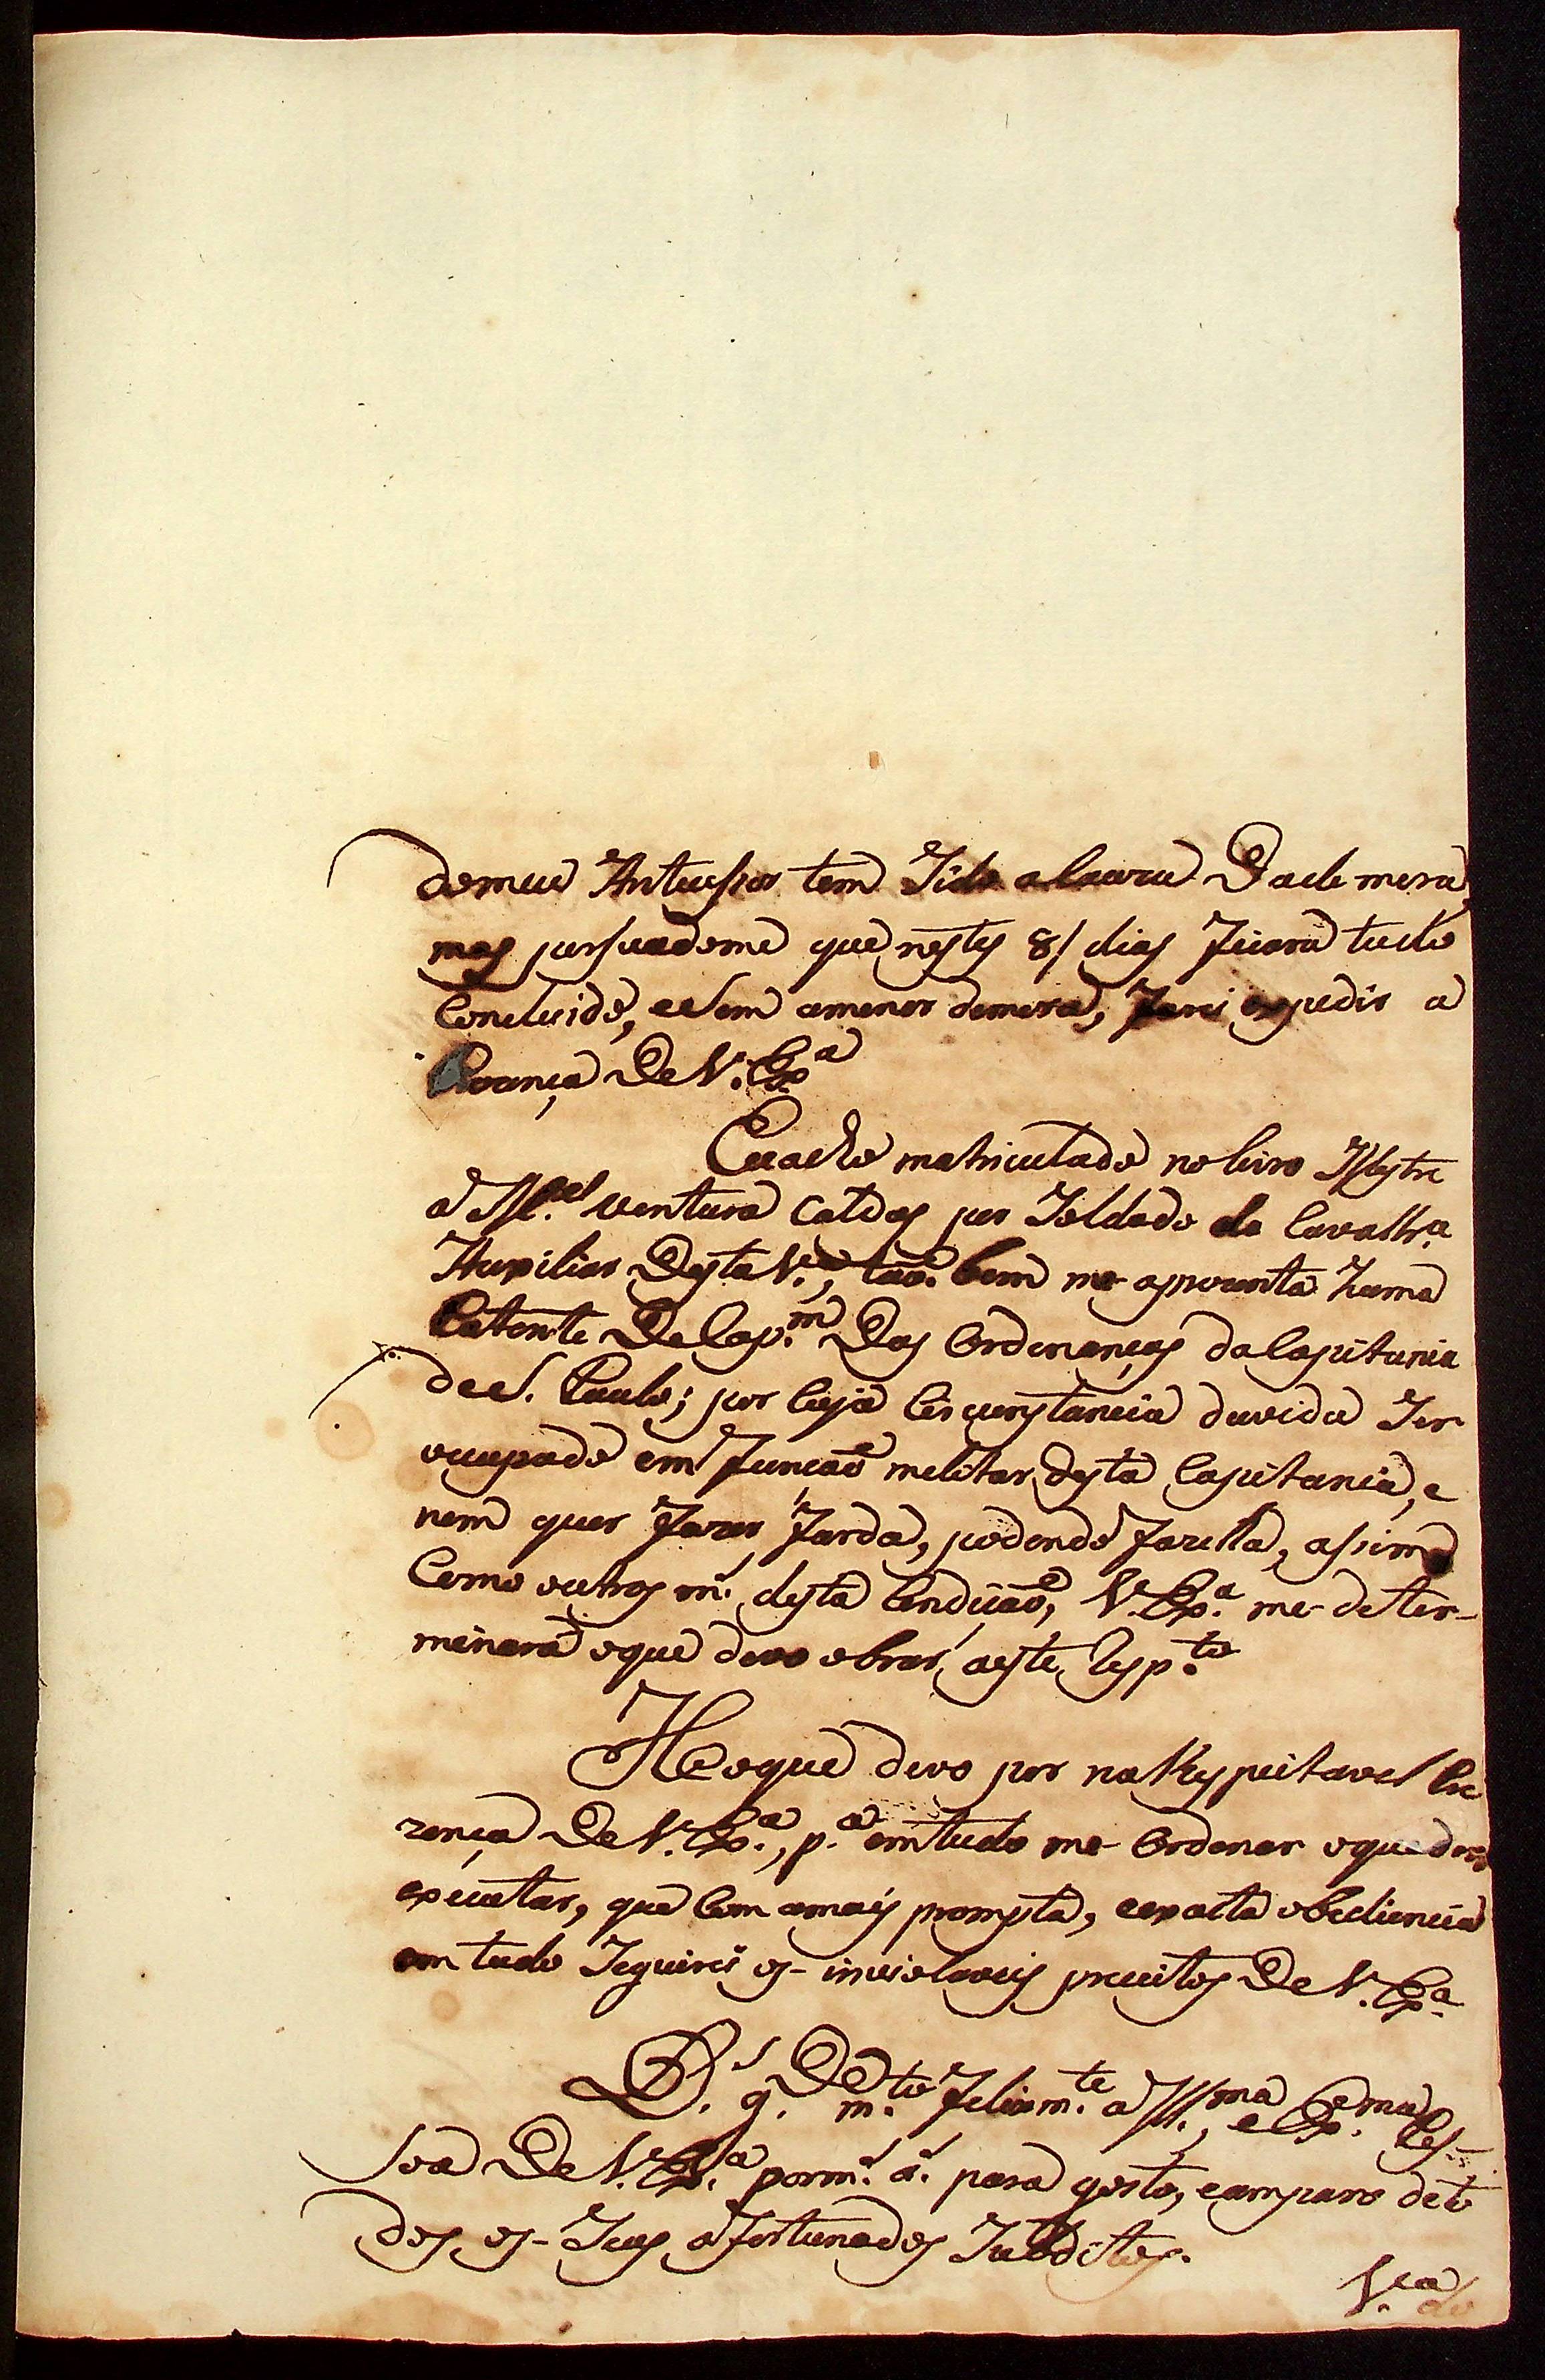 do meu Antecessor tem Sido a Cauza Da demora,
mas persuadome que nestes 8/ dias ficará tudo
Concluido, e Sem a menor demora, farei expedir a
Prezença De V. Exª
Eu acho matriculado no livro Mestre
a M.el Ventura Caldas por Soldado de Cavallrª
Auxiliar Desta V.ª, tão bem me aprezenta huma
Patente De Cap.m Das Ordenanças da Capitania
de S. Paulo; por Cuja Circunstancia duvida Ser
ocupado em função melitar desta Capitania, e
nem quer fazer farda, podendo fazella, asim
Como outros m.s desta Condição, V. Exª me deter-
minará o que devo obrar, a este Resp.to
He o que devo por na Respeitavel Pre
zença De V. Exª, p.ª em tudo me Ordenar o que devo
executar, que Com a mais prompta, e exacta obediencia
em tudo Seguirei os inviolaveis preceitos De V. Exª
D.s g.De m.to felixm.te a Ill.ma, e Ex.ma Pes-
soa De V. Exª por m.s a.s para gosto, e amparo de to
dos os Seus afortunados Subditos.
V.ª